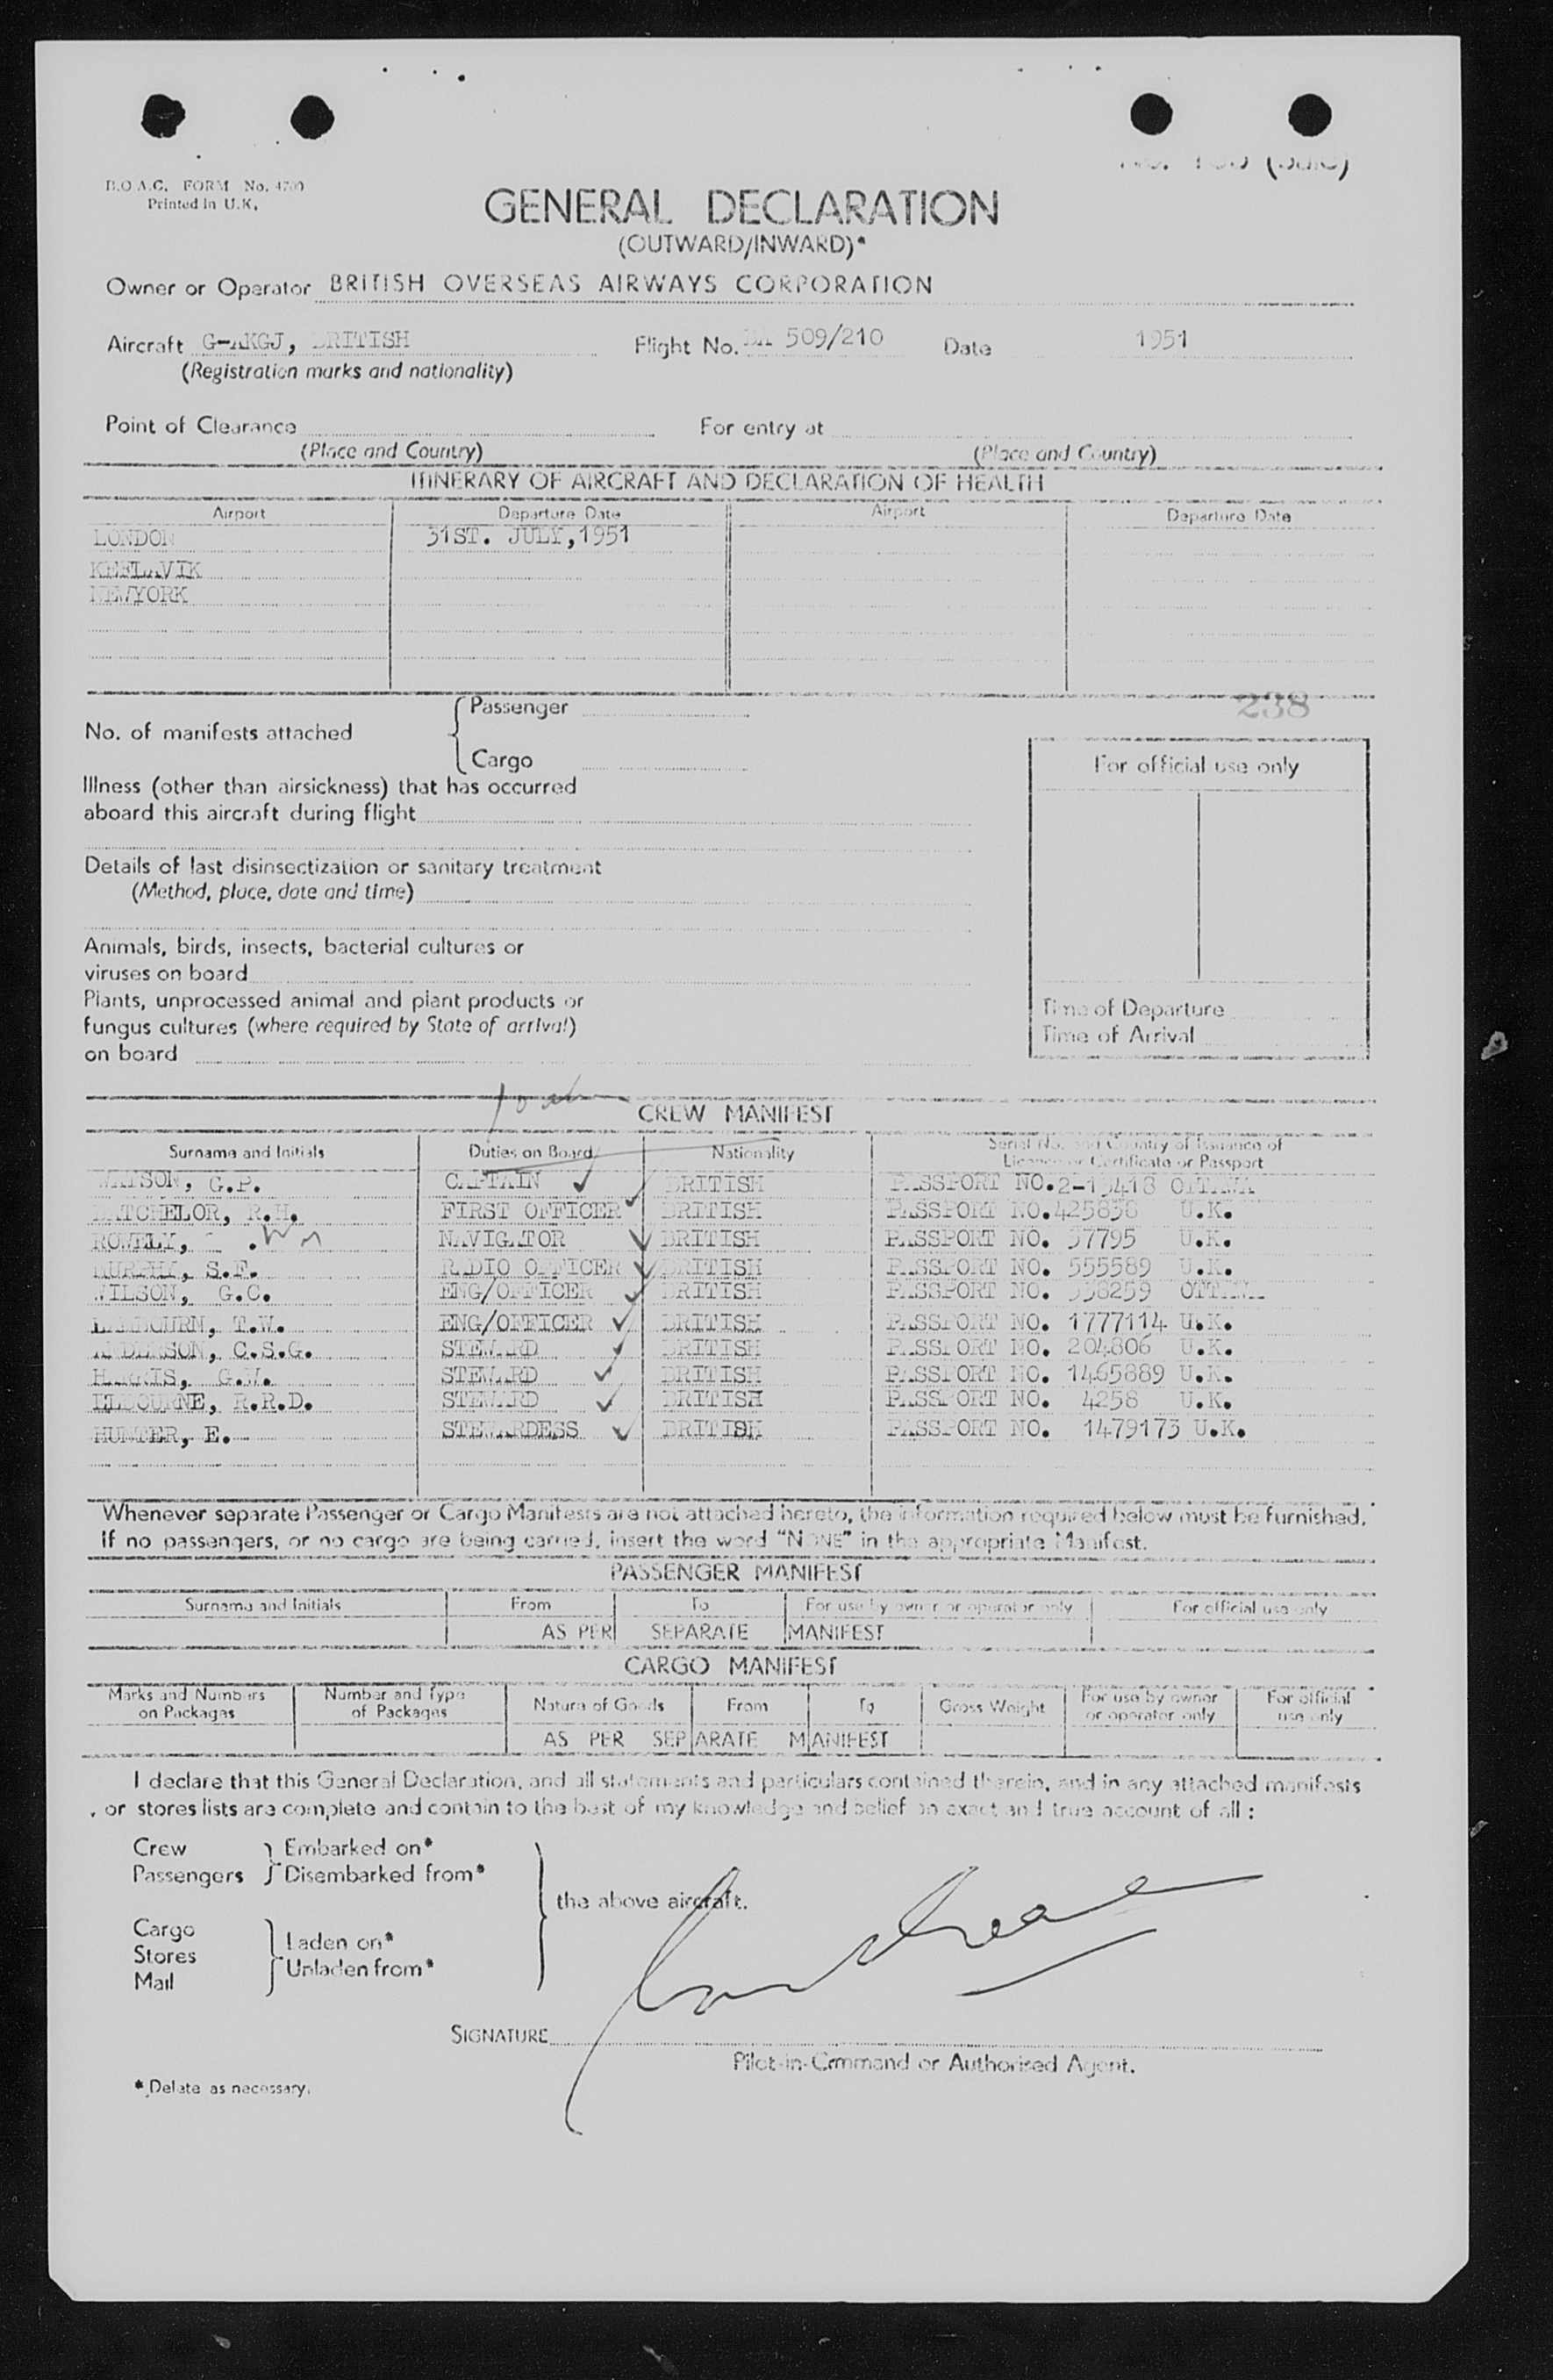 B.O.A.C. FORM No. 4700
Printed in U.K.
GENERAL DECLARATION
(OUTWARD/INWARD)*
Owner or Operator BRITISH OVERSEAS AIRWAYS CORPORATION
Aircraft G-AKGJ, BRITISH Flight No. BA 509/210 Date 1951
(Registration marks and nationality)
Point of Clearance For entry at
(Place and Country) (Place and Country)
ITINERARY OF AIRCRAFT AND DECLARATION OF HEALTH
Airport Departure Date Airport Departure Date
LONDON 31ST. JULY, 1951
KEFLAVIK
NEWYORK
238
Passenger
No. of manifests attached
Cargo
For official use only
Illness (other than airsickness) that has occurred
aboard this aircraft during flight
Details of last disinsectization or sanitary treatment
(Method, place, date and time)
Animals, birds, insects, bacterial cultures or
viruses on board
Plants, unprocessed animal and plant products or
fungus cultures (where required by State of arrival)
on board
Time of Departure
Time of Arrival
CREW MANIFEST
Surname and Initials Duties on Board Nationality Serial No. and Country of Issuance of
Licence or Certificate or Passport
WATSON, G.P. CAPTAIN ✓ BRITISH PASSPORT NO. OTTAWA
BATCHELOR, R.H. FIRST OFFICER ✓ BRITISH PASSPORT NO. 425838 U.K.
ROWELY, NAVIGATOR ✓ BRITISH PASSPORT NO. 37795 U.K.
MURPHY, S.F. RADIO OFFICER ✓ BRITISH PASSPORT NO. 555589 U.K.
WILSON, G.C. ENG/OFFICER ✓ BRITISH PASSPORT NO. OTTAWA
T.W. ENG/OFFICER ✓ BRITISH PASSPORT NO. 1777114 U.K.
ANDERSON, C.S.G. STEWARD ✓ BRITISH PASSPORT NO. 204806 U.K.
HARRIS, G.W. STEWARD ✓ BRITISH PASSPORT NO. 1465889 U.K.
ELBOURNE, R.R.D. STEWARD ✓ BRITISH PASSPORT NO. 4258 U.K.
HUNTER, E. STEWARDESS ✓ BRITISH PASSPORT NO. 1479173 U.K.
Whenever separate Passenger or Cargo Manifests are not attached hereto, the information required below must be furnished.
If no passengers, or no cargo are being carried, insert the word "NONE" in the appropriate Manifest.
PASSENGER MANIFEST
Surname and Initials From To For use by owner or operator only For official use only
AS PER SEPARATE MANIFEST
CARGO MANIFEST
Marks and Numbers on Packages Number and Type of Packages Nature of Goods From To Gross Weight For use by owner or operator only For official use only
AS PER SEPARATE MANIFEST
I declare that this General Declaration, and all statements and particulars contained therein, and in any attached manifests
, or stores lists are complete and contain to the best of my knowledge and belief an exact and true account of all :
Crew Embarked on*
Passengers Disembarked from*
the above aircraft.
Cargo
Stores Laden on*
Mail Unladen from*
SIGNATURE
Pilot-in-Command or Authorised Agent.
* Delete as necessary.